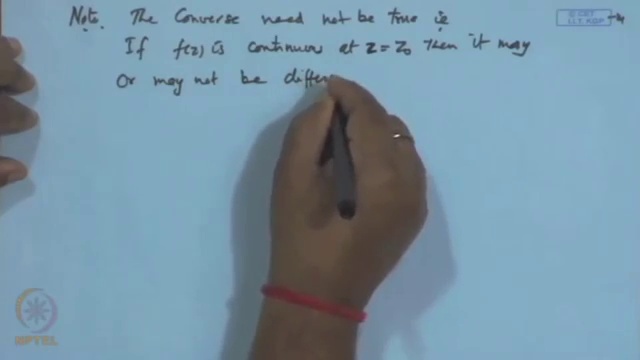 Note. The Converse need not be true ie
If f(z) is continuous at z = z₀ then it may
or may not be differ
© CET
I.I.T. KGP
NPTEL